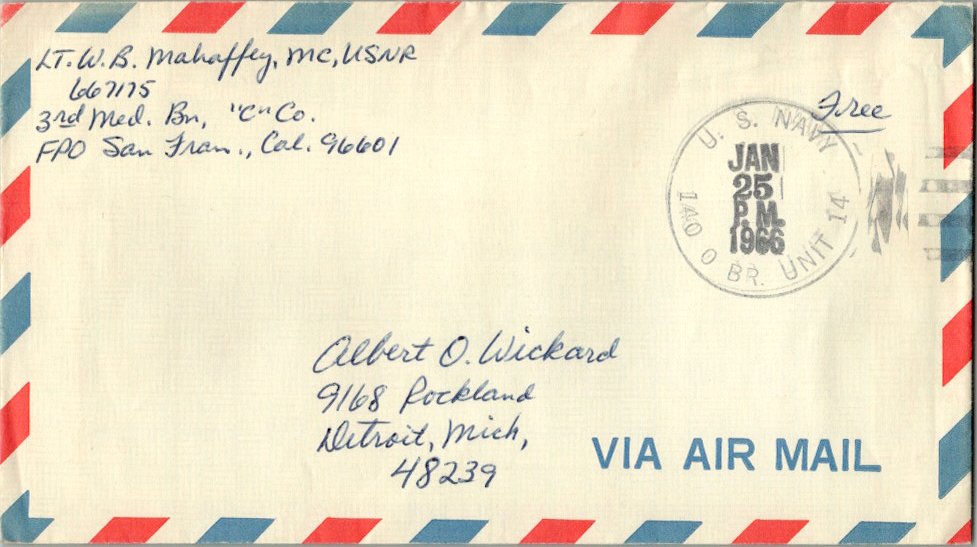 LT. W. B. Mahaffey, MC, USNR
667175
3rd Med. Bn, "C" Co.
FPO San Fran., Cal. 96601
Free
U. S. NAVY
JAN
25
P.M.
1966
14001 BR. UNIT 14
Albert O. Wickard
9168 Rockland
Detroit, Mich,
48239
VIA AIR MAIL